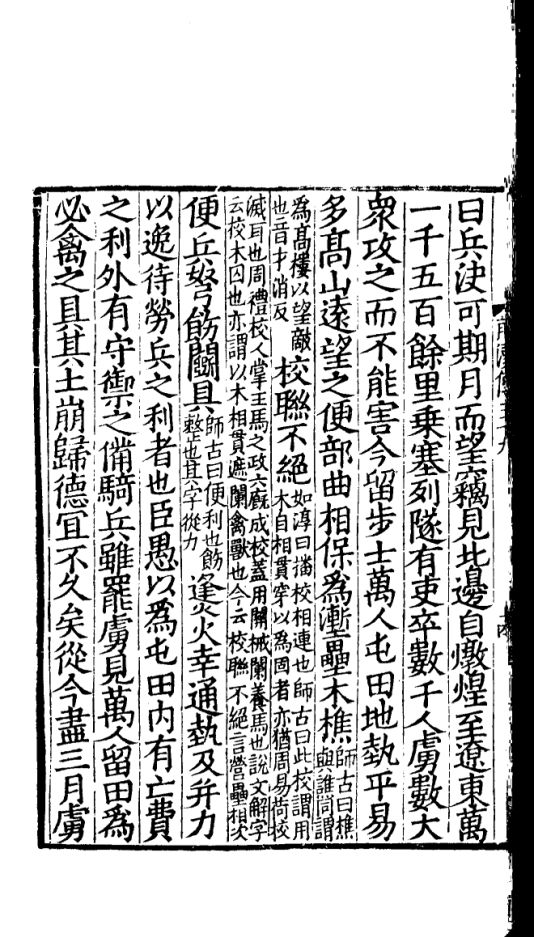 日兵決可期月而望竊見北邊自燉煌至遼東萬
一千五百餘里乗塞列隧有吏卒數千人虜數大
衆攻之而不能害今留步士萬人屯田地埶平易
多髙山逺望之便部曲相保爲壍壘木樵師古曰樵與譙同謂
爲髙樓以望敵也音才消反校聯不絶如淳曰播校相連也師古曰此校謂用木自相貫穿以爲固者亦猶周易荷校
滅耳也周禮校人掌王馬之政六廐成校蓋用關械闌養馬也說文解字云校木囚也亦謂以木相貫遮闌禽獸也今云校聯不絶言營壘相次
便兵弩飭鬭具師古曰便利也飭整也其字從力㷭火幸通埶及并力
以逸待勞兵之利者也臣愚以爲屯田内有亡費
之利外有守禦之備騎兵雖罷虜見萬人留田爲
必禽之具其土崩歸德宜不久矣從今盡三月虜